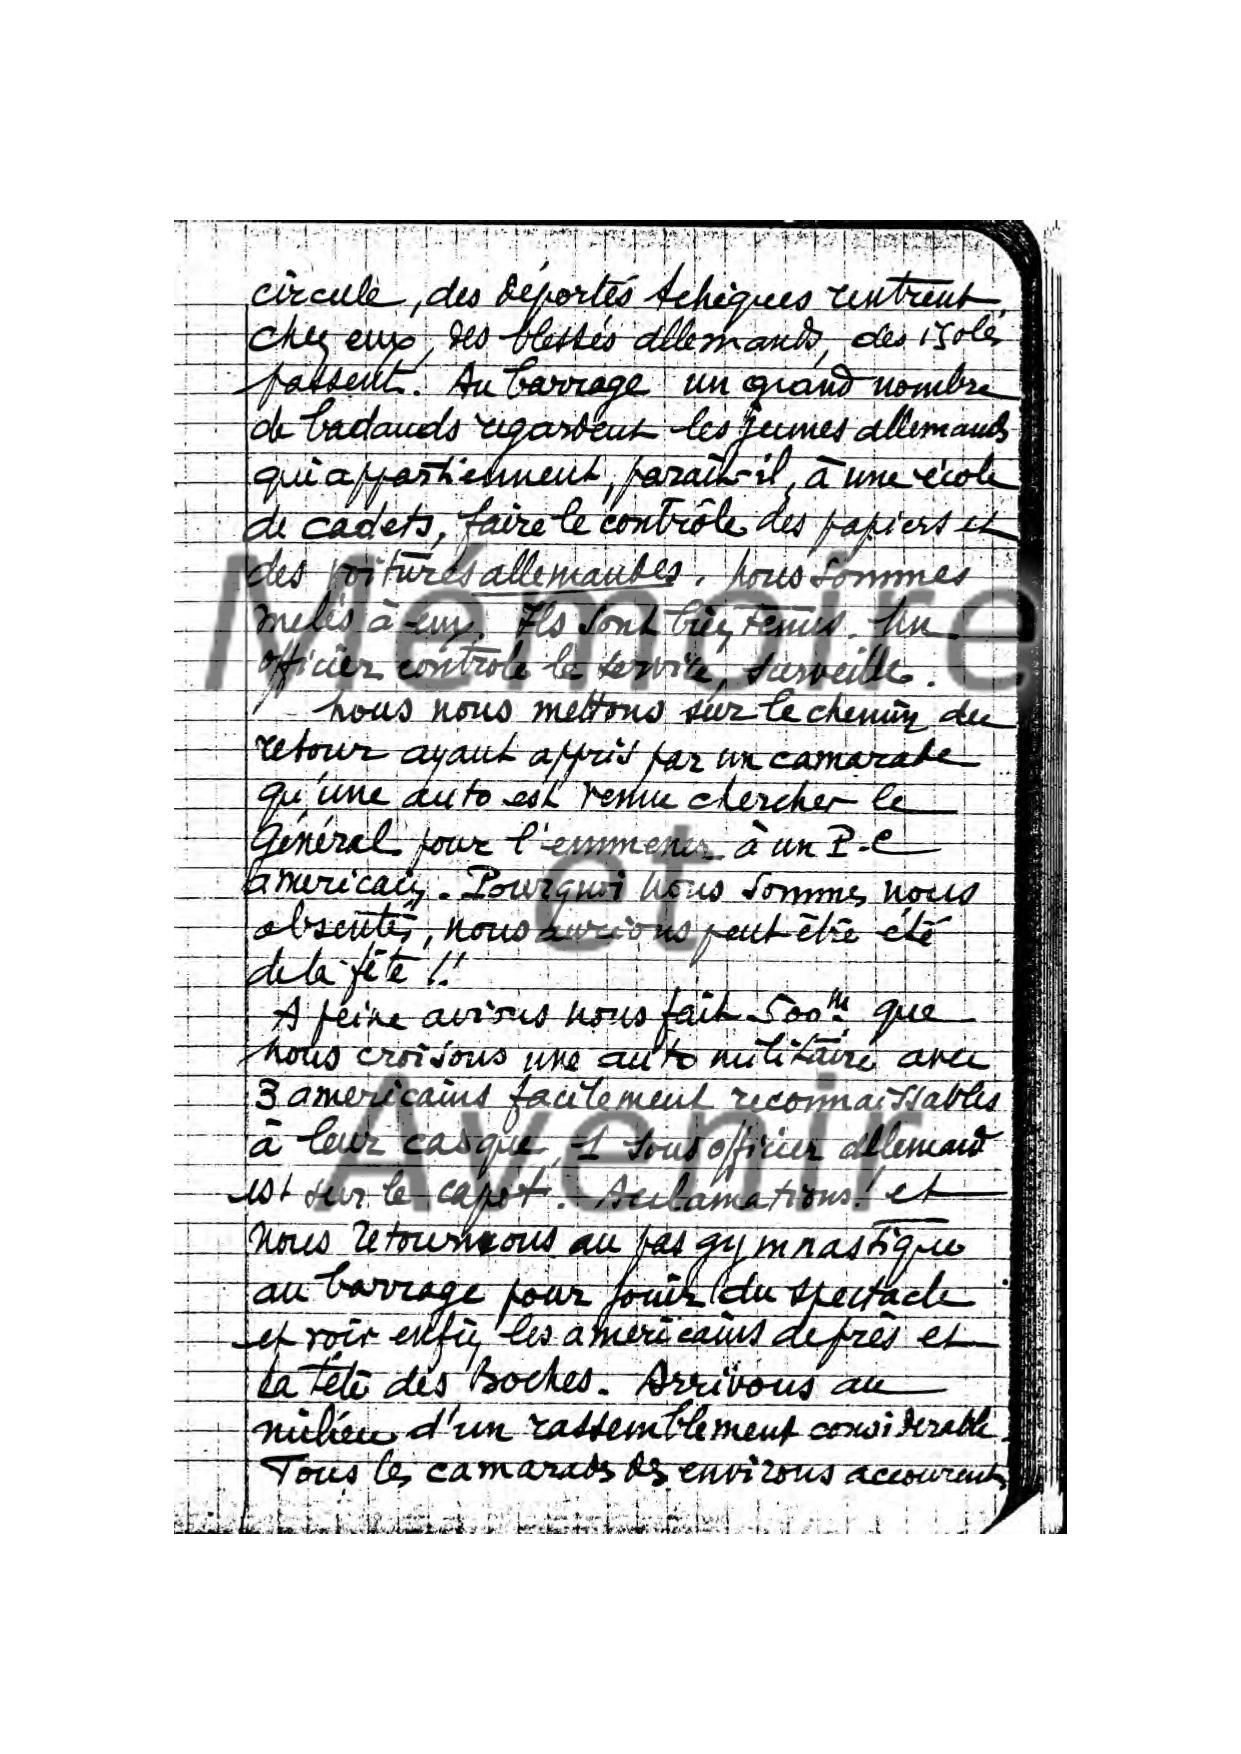 circule, des déportés tchèques rentrent
chez eux, des blessés allemands, des isolés
passent. Au barrage un grand nombre
de badauds regardent les jeunes allemands
qui appartiennent, paraît-il, à une école
de cadets, faire le contrôle des papiers et
des voitures allemandes. Nous sommes
mêlés à eux. Ils sont bien tenus. Un
officier contrôle le service, surveille.
Nous nous mettons sur le chemin du
retour ayant appris par un camarade
qu'une auto est venue chercher le
Général pour l'emmener à un P.C
américain. Pourquoi nous sommes nous
absentés, nous aurions peut-être été
de la fête !!
A peine avions nous fait 500m que
nous croisons une auto militaire avec
3 américains facilement reconnaissables
à leur casque, 1 sous officier allemand
est sur le capot. Acclamations! et
nous retournons au pas gymnastique
au barrage pour jouir du spectacle
et voir enfin les américains de près et
la tête des Boches. Arrivons au
milieu d'un rassemblement considérable.
Tous les camarades des environs accourent
Mémoire
et
Avenir